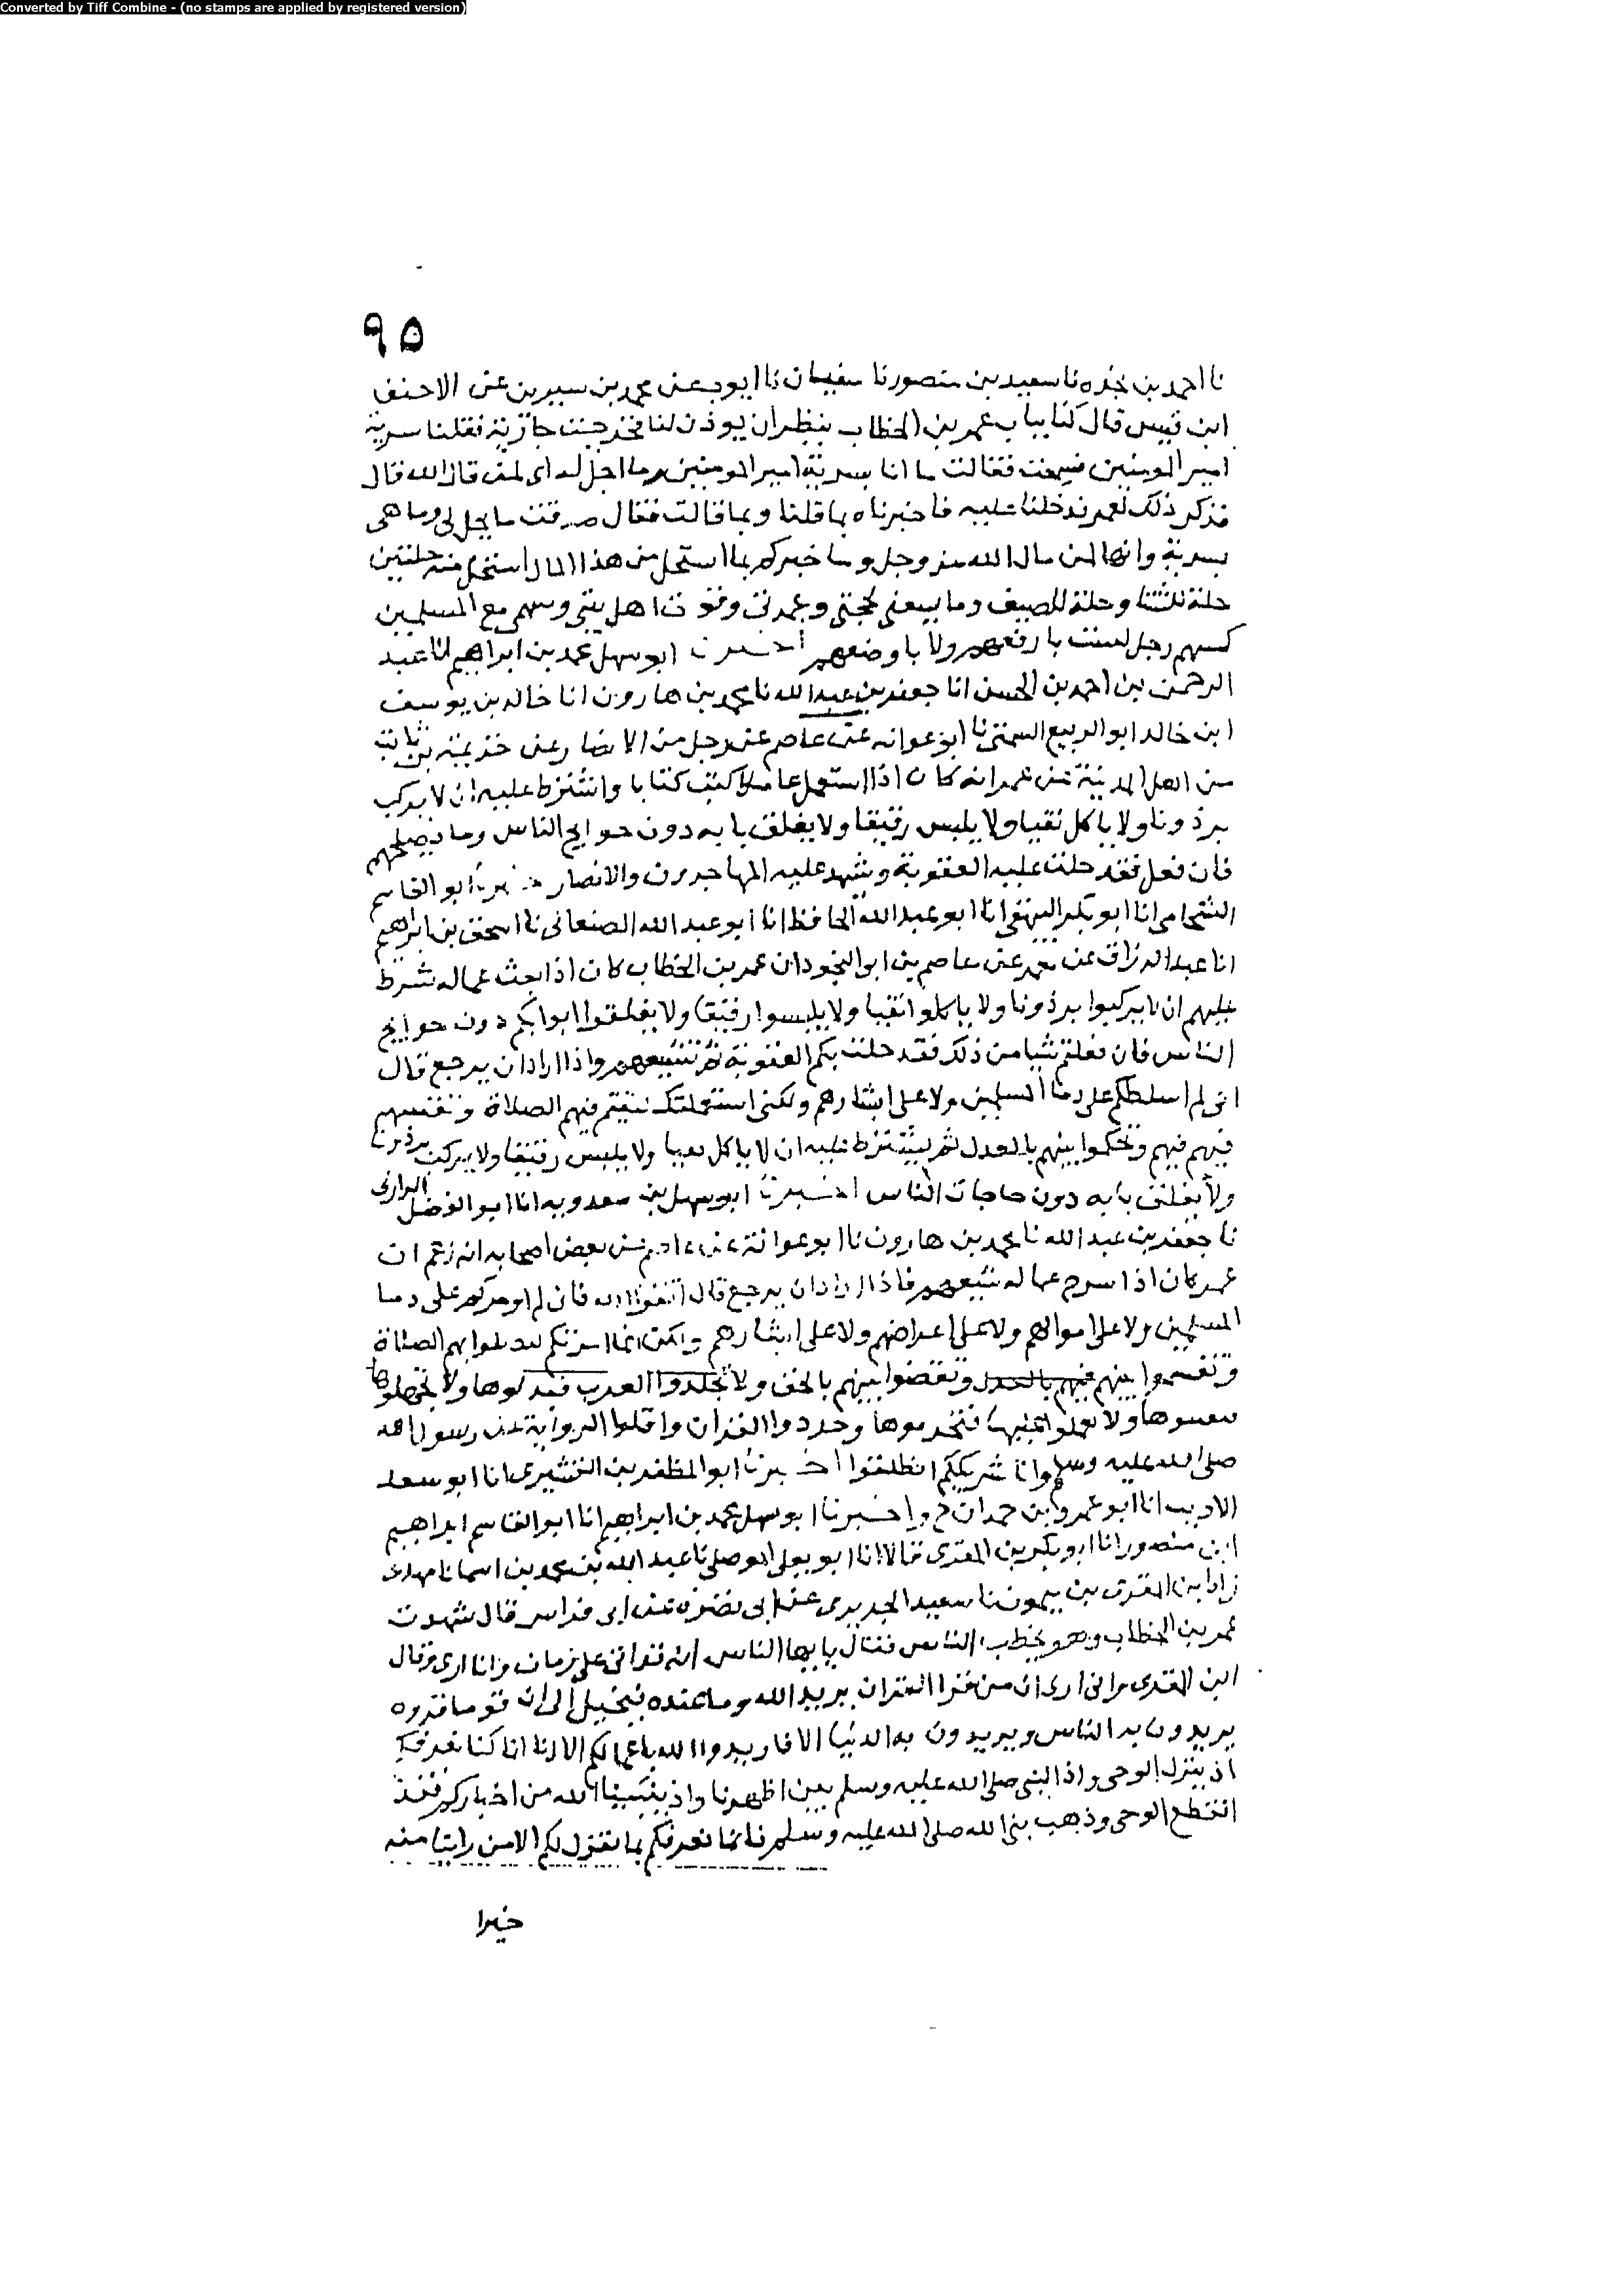 Converted by Tiff Combine - (no stamps are applied by registered version)
٩٥
نا احمد بن نجده نا سعيد بن منصور نا سفيان نا ايوب عن محمد بن سيرين عن الاحنف
ابن قيس قال كنا بباب عمر بن الخطاب ننظر ان يوذن لنا فخرجت جارية فقلنا سرية
امير المومنين فسمعت فقالت ما انا بسرية امير المومنين وما احل له اى لمن قال الله قال
فذكر ذلك لعمر فدخلنا عليه فاخبرناه بما قلنا وبما قالت فقال صدقت ما تحل لى وما هى
بسرية وانها لمن مال الله عز وجل وساخبركم بما استحل من هذا المال استحل منه حلتين
حلة للشتا وحلة للصيف وما يسعنى لحجتى وعمرتى وقوت اهل بيتى وسهمى مع المسلمين
كسهم رجل لست بارفعهم ولا باوضعهم اخبرنا ابو سهل محمد بن ابراهيم انا عبد
الرحمن بن احمد بن الحسن انا جعفر بن عبد الله نا محمد بن هارون انا خالد بن يوسف
ابن خالد ابو الربيع السمتى نا ابو عوانه عن عاصم عن رجل من الانصار عن خزيمة بن ثابت
من اهل المدينة عن عمر انه كان اذا استعمل عاملا كتب كتابا واشترط عليه ان لا يركب
برذونا ولا ياكل نقيا ولا يلبس رقيقا ولا يغلق بابه دون حوايج الناس وما يصلحهم
فان فعل فقد حلت عليه العقوبة وشهد عليه المهاجرون والانصار اخبرنا ابو القاسم
الشحامى انا ابو بكر البيهقى انا ابو عبد الله الحافظ انا ابو عبد الله الصنعانى نا اسحق بن ابراهيم
انا عبد الرزاق عن معمر عن عاصم بن ابو النجود ان عمر بن الخطاب كان اذا بعث عماله شرط
عليهم ان لا يركبوا برذونا ولا ياكلوا نقيا ولا يلبسوا رقيقا ولا يغلقوا ابوابكم دون حوايج
الناس فان فعلتم شيا من ذلك فقد حلت بكم العقوبة ثم يشيعهم واذا اراد ان يرجع قال
انى لم اسلطكم على دما المسلمين ولا على ابشارهم ولكنى استعملتك لتقيم فيهم الصلاة وتقسم
فيهم فيهم وتحكموا بينهم بالعدل ثم يشترط عليه ان لا ياكل نقيا ولا يلبس رقيقا ولا يركب برذونا
ولا يغلق بابه دون حاجات الناس اخبرنا ابو سهل بن سعدويه انا ابو الفضل الرازى
نا جعفر بن عبد الله نا محمد بن هارون نا ابو عوانة عن عاصم عن بعض اصحابه انه زعم ان
عمر كان اذا سرح عماله شيعهم فاذا اراد ان يرجع قال اتقوا الله فان لم اومركم على دما
المسلمين ولا على اموالهم ولا على اعراضهم ولا على ابشارهم ولكن انما امرتكم لتصلوا بهم الصلاة
وتقسموا بينهم فيهم بالعدل وتقضوا بينهم بالحق ولا تجلدوا العرب فتذلوها ولا تجهلوها
ولا فتحرموها وجردوا القران واقلوا الرواية عن رسول الله
صلى الله عليه وسلم وانا شريككم انطلقوا اخبرنا ابو المظفر بن القشيرى انا ابو سعد
الاديب انا ابو عمرو بن حمدان ح واخبرنا ابو سهل محمد بن ابراهيم انا ابو القاسم ابراهيم
ابن منصور انا ابو بكر بن المقرى قالا انا ابو يعلى الموصلى نا عبد الله بن محمد بن اسما نا مهدى
زاد ابن المقرى بن ميمون نا سعيد الجريرى عن ابى نضره عن ابى فراس قال شهدت
عمر بن الخطاب وهو يخطب الناس فقال يايها الناس انه قد اتى على زمان وانا ارى وقال
ابن المقرى وانى ارى ان من قرا القران يريد الله وما عنده فيخيل الى ان قوما قروه
يريدون به الناس ويريدون به الدنيا الا فاريدوا الله باعمالكم الا انا انما كنا نعرفكم
اذ ينزل الوحى واذا النبى صلى الله عليه وسلم بين اظهرنا واذ ينبينا الله من اخباركم فقد
انقطع الوحى وذهب بنبى الله صلى الله عليه وسلم فانما نعرفكم بما نقول لكم الا من راينا منه
خيرا